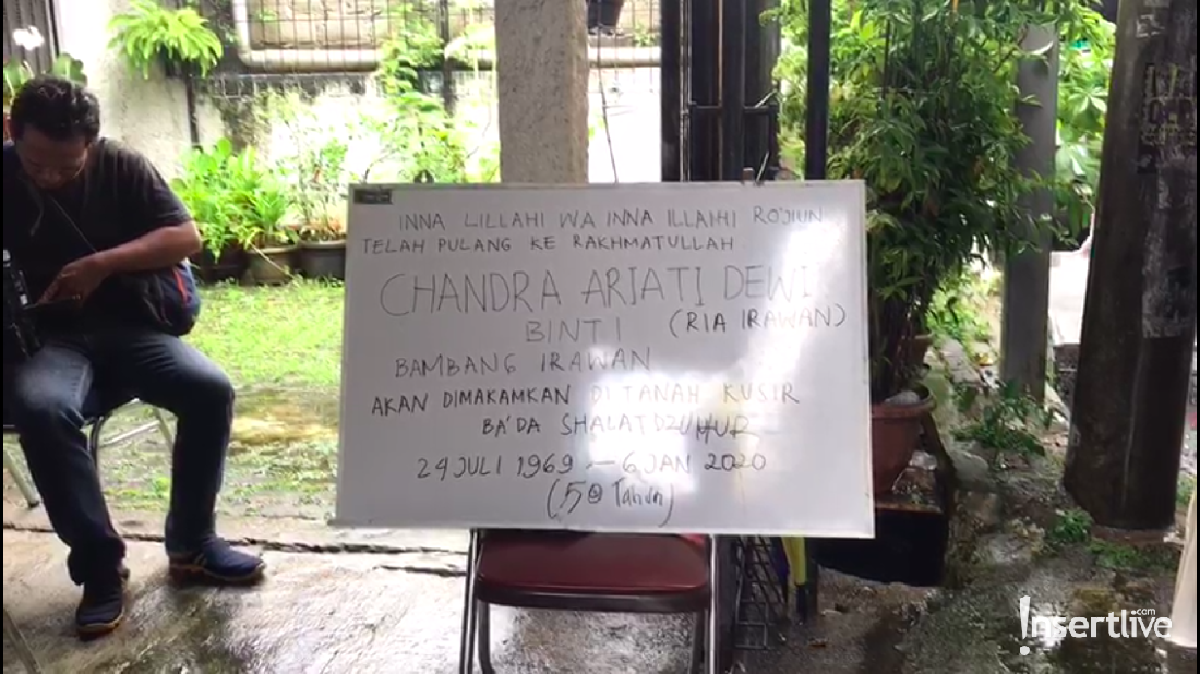 INNA LILLAHI WA INNA ILLAHHI RO'JIUN
TELAH PULANG KE RAKHMATULLAH
CHANDRA ARIATI DEWI
BINTI (RIA IRAWAN)
BAMBANG IRAWAN
AKAN DIMAKAMKAN DI TANAH KUSIR
BA'DA SHALAT DZUHUR
24 JULI 1969 – 6 JAN 2020
(50 Tahun)
insertlive.com